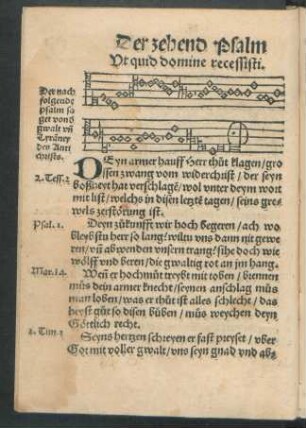 Der zehend Psalm
Vt quid domine recessisti.
Der nach
folgende
psalm sa
get vons
gwalt vñ
Tyräney
des Anti
christs.
DEyn armer hauff Herr thůt klagen/gro
ssen zwang vom widerchrist / der seyn
2. Tess. 2
boßheyt hat verschlagẽ/ wol vnter deym wort
mit list/ welchs in disen letztẽ tagen / seins gre-
wels zerstörung ist.
Psal. 1.
Deyn zůkunfft wir hoch begeren /ach wo
bleybstu herr so lang/ wiltu vns dann nit gewe
ren / vñ abwenden vnsern trang? sihe doch wie
wölff vnd beren/die gwaltig rot an jn hang.
Mar. 14.
Weñ er hochmůt treybt mit toben / biennen
můs dein armer knecht/ seynen anschlag můs
man loben/ was er thůt ist alles schlecht / das
heyst gůt so disen bůben / můs weychen deyn
Götlich recht.
2. Tim. 3
Seyns hertzen schreyen er fast preyset / vber
Got mit voller gwalt/ vns seyn gnad vnd